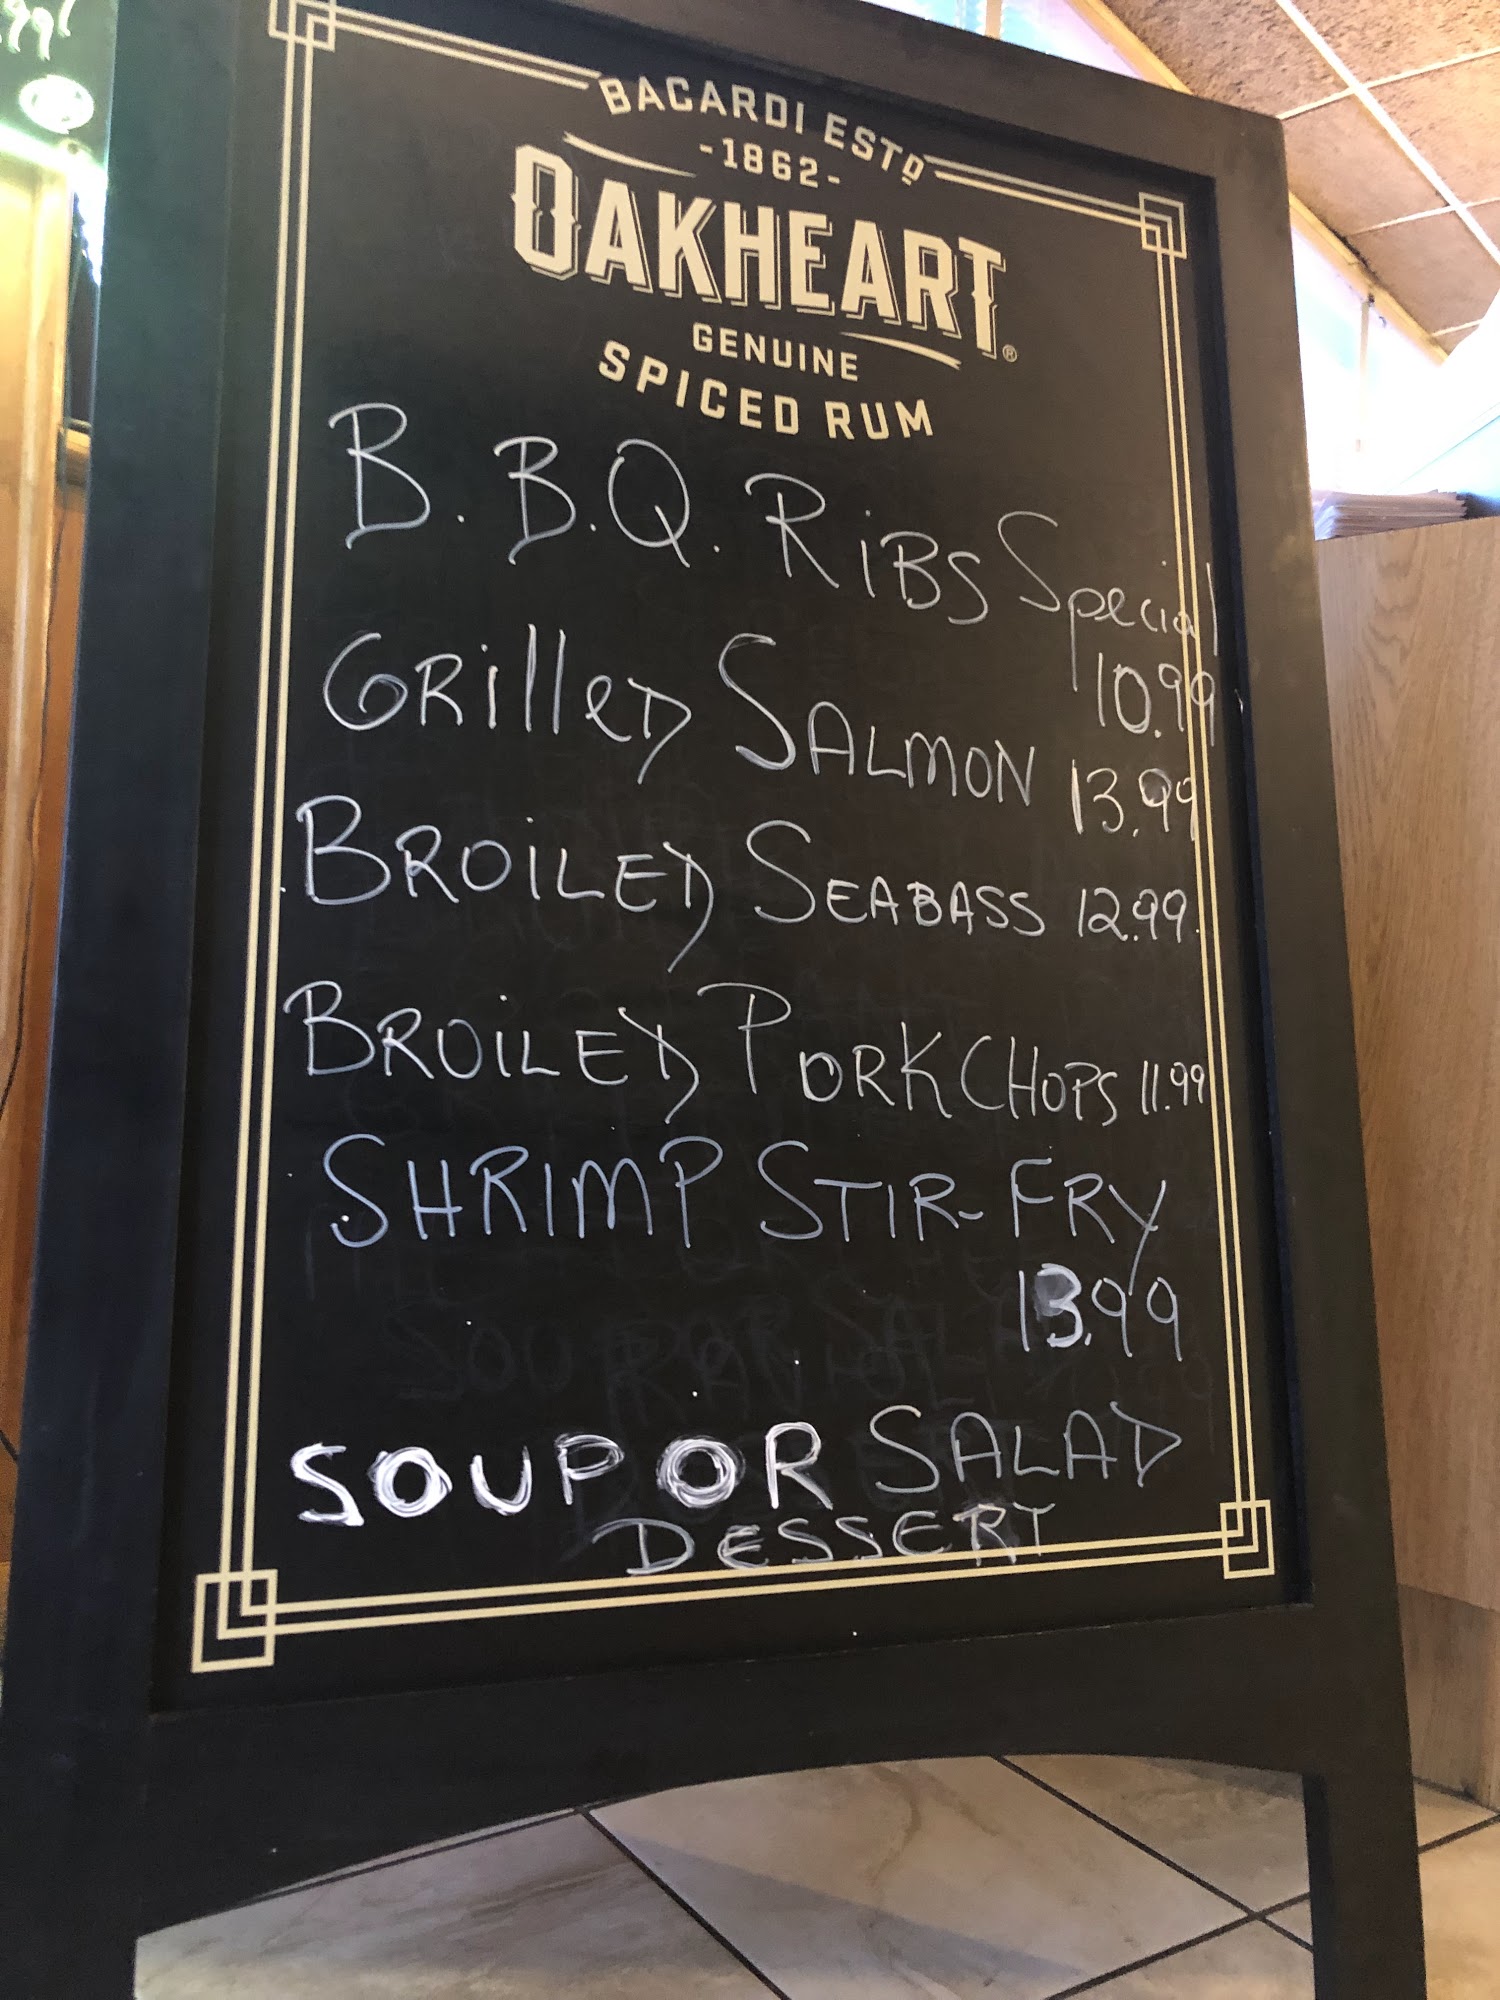 BACARDI ESTD
-1862-
OAKHEART®
GENUINE
SPICED RUM
B.B.Q. RiBS Special
10.99
GRilleD SALMON 13.99
BROiLED SEABASS 12.99
BROiLED PORK CHOPS 11.99
SHRIMP STIR-FRY
13.99
SOUP OR SALAD
DESSERT